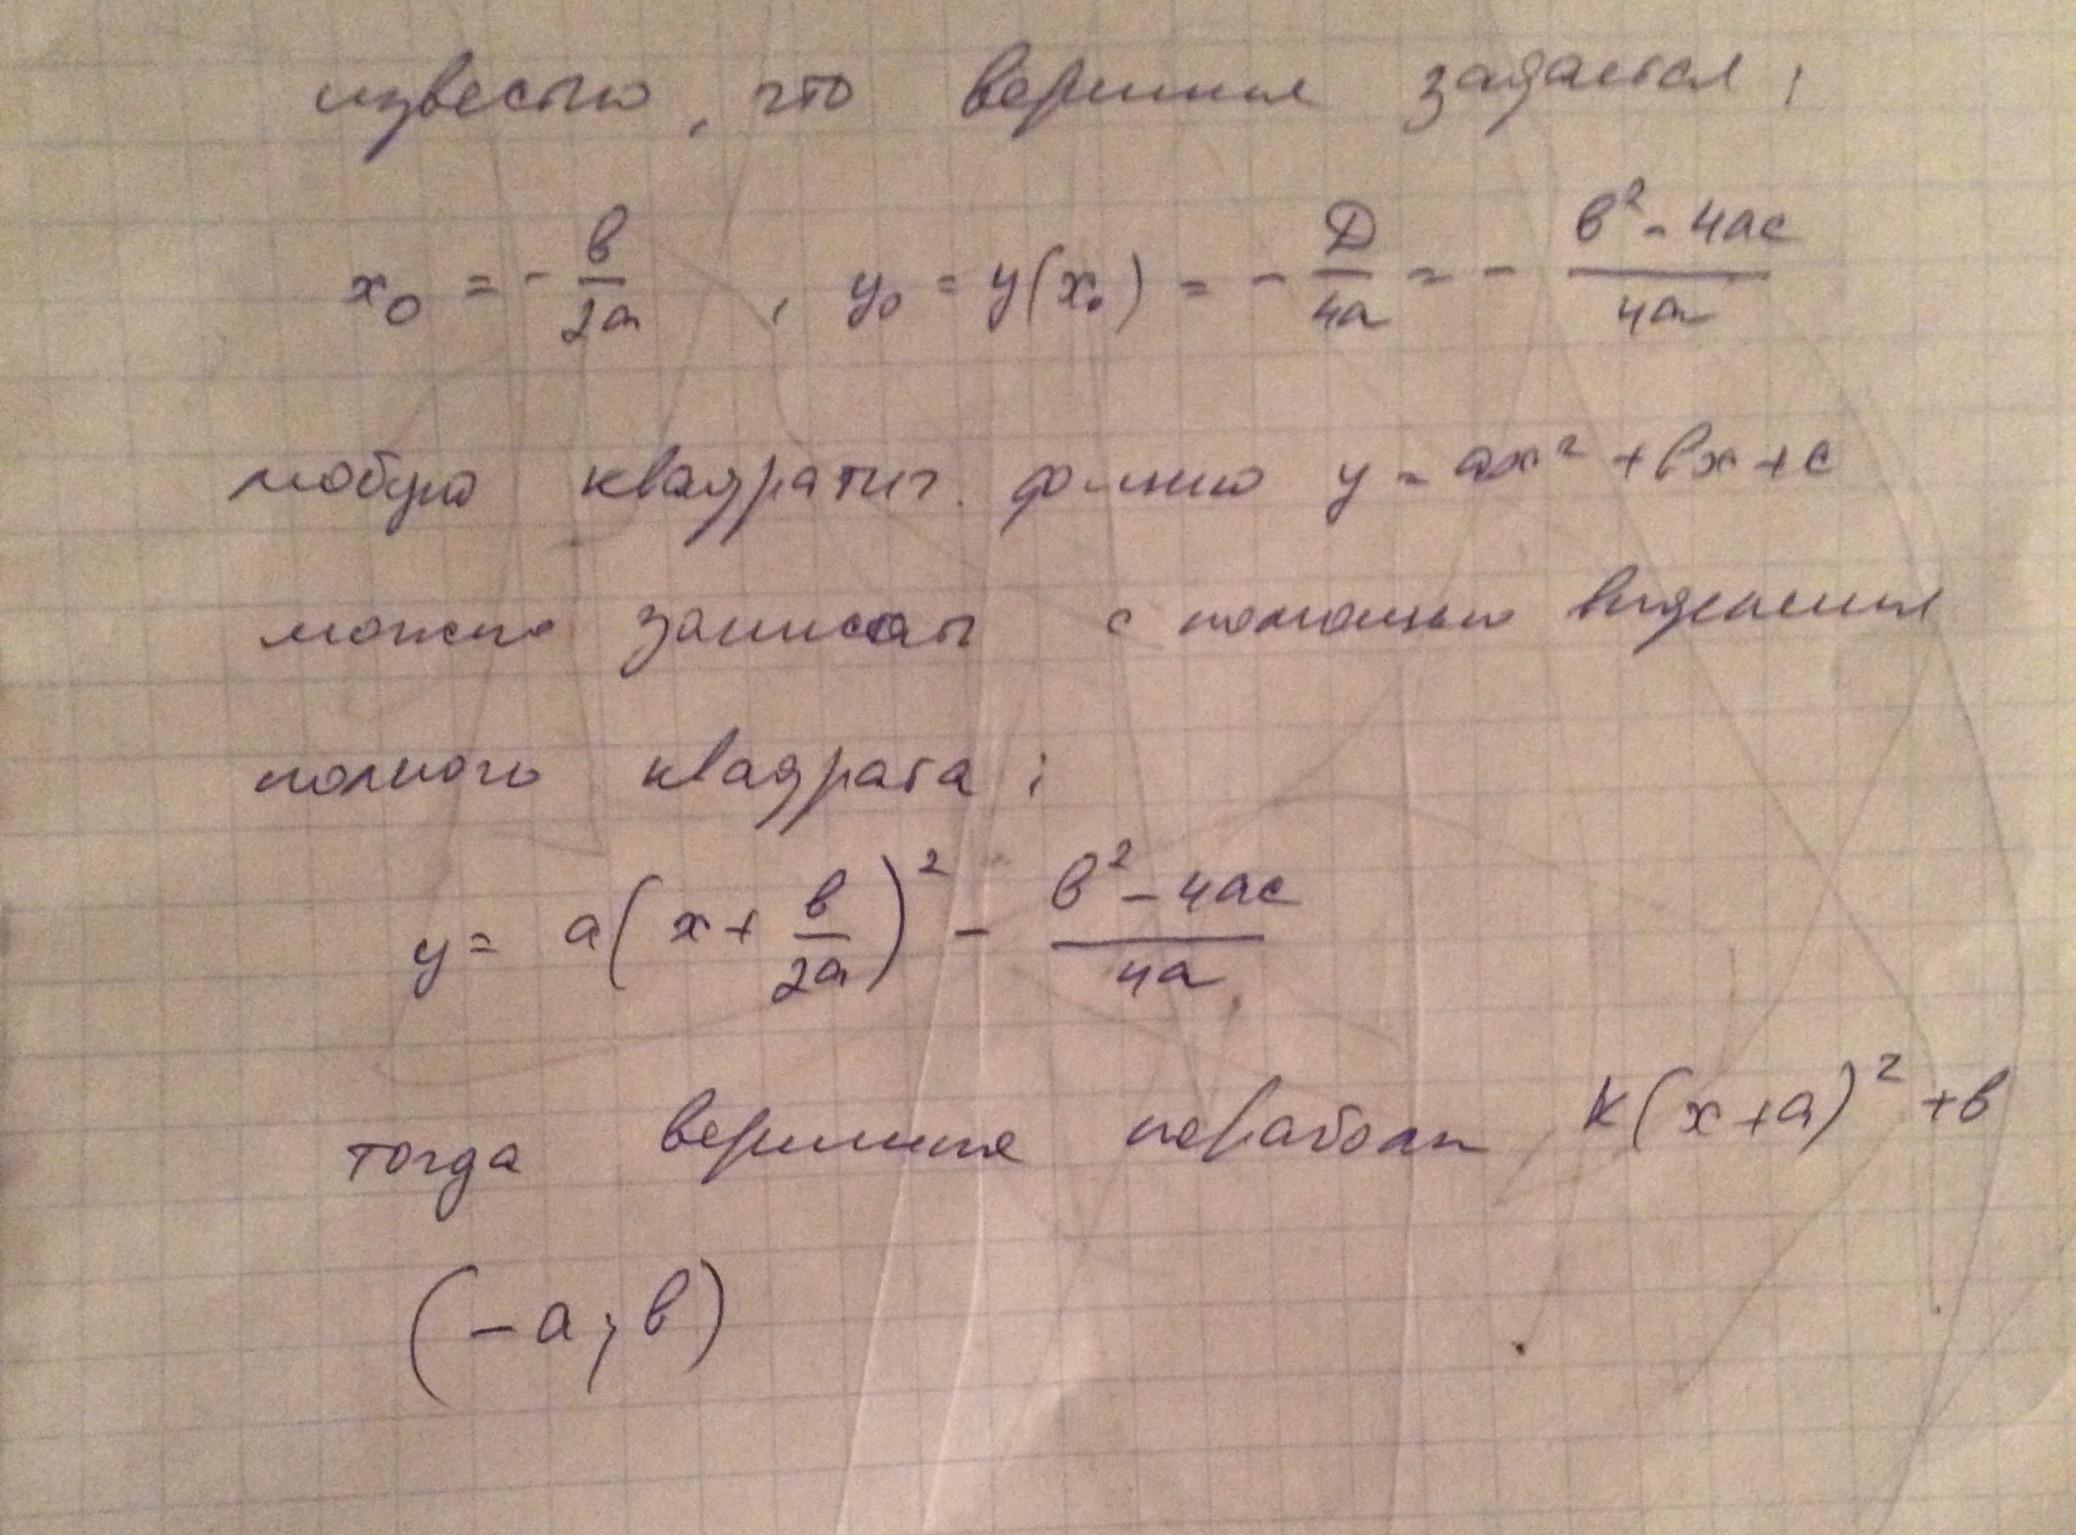 известно, что вершина задается:
x₀ = - b/2a , y₀ = y(x₀) = - D/4a = - (b² - 4ac)/4a
любую квадратич. ф-цию y = ax² + bx + c
можно записать с помощью выделения
полного квадрата:
y = a(x + b/2a)² - (b² - 4ac)/4a
тогда вершина параболы k(x+a)² + b
(-a; b)